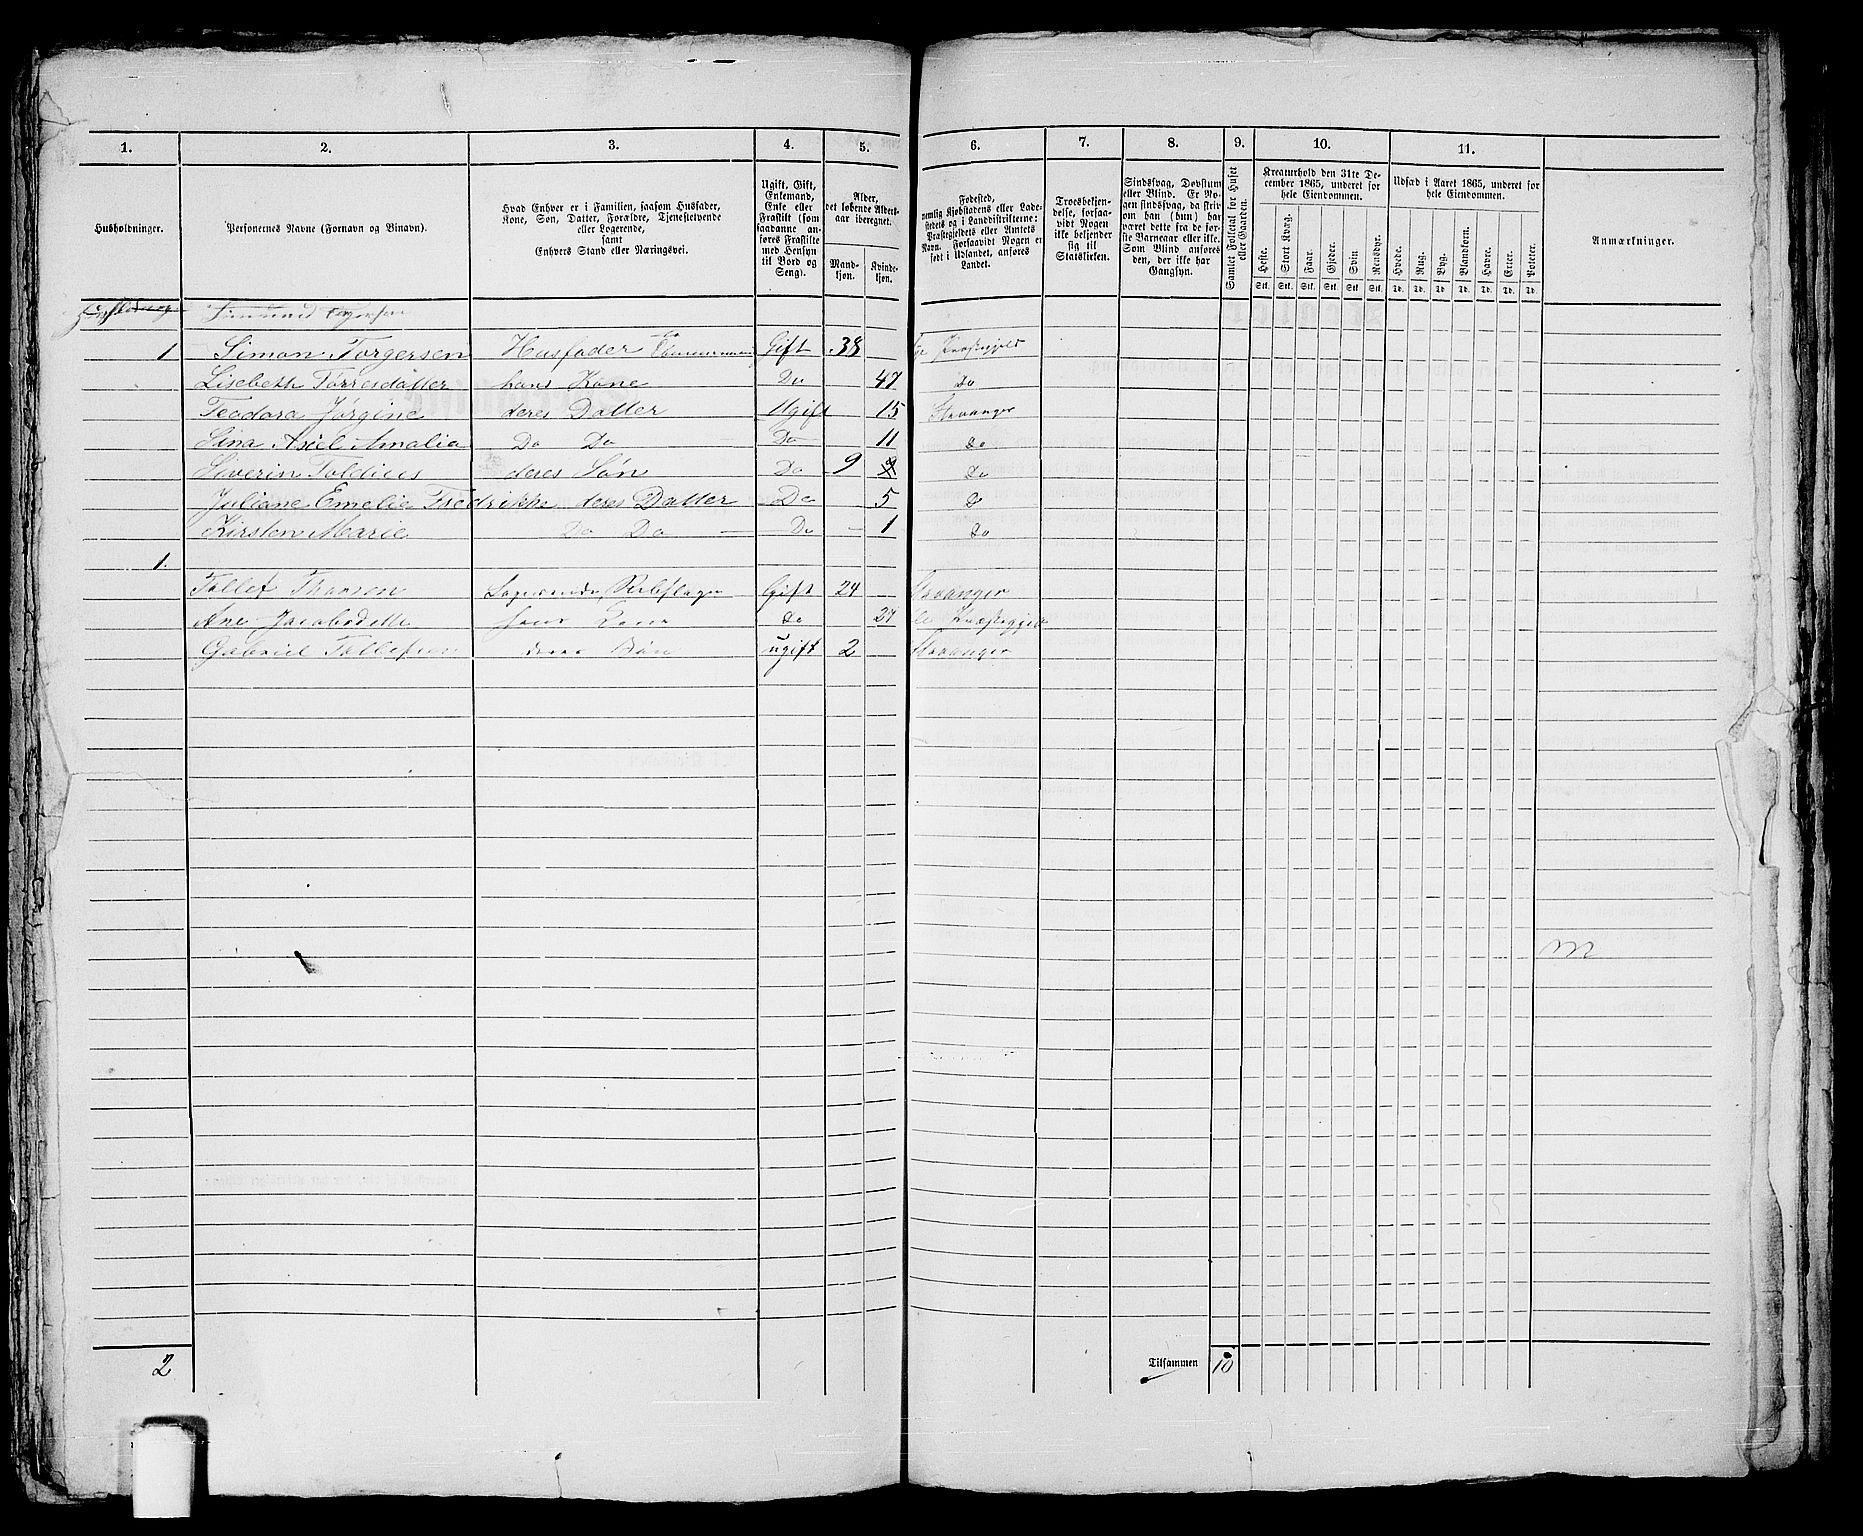 1. 2. 3. 4. 5. 6. 7. 8. 9. 10. 11.
Husholdninger.
Personernes Navne (Fornavn og Binavn).
Hvad Enhver er i Familien, saasom Husfader,
Kone, Søn, Datter, Forældre, Tjenestetyende
eller Logerende,
samt
Enhvers Stand eller Næringsvei.
Ugift, Gift,
Enkemand,
Enke eller
Fraskilt (som
saadanne an-
føres Fraskilte
med Hensyn
til Bord og
Seng).
Alder,
det løbende Alders-
aar iberegnet.
Mand-
kjøn.
Kvinde-
kjøn.
Fødested,
nemlig Kjøbstadens eller Lade-
stedets og i Landdistrikterne:
Præstegjeldets eller Amtets
Navn. Forsaavidt Nogen er
født i Udlandet, anføres
Landet.
Troesbekjen-
delse, forsaa-
vidt Nogen
ikke bekjender
sig til
Statskirken.
Sindssvag, Døvstum
eller Blind. Er No-
gen sindssvag, da skriv
om han (hun) har
været dette fra de før-
ste Barneaar eller ikke.
Som Blind anføres
den, der ikke har
Gangsyn.
Samlet Folketal for Huset
eller Gaarden.
Kreaturhold den 31te De-
cember 1865, underet for
hele Eiendommen.
Heste. Stort Kvæg. Faar. Gjeder. Svin. Rensdyr.
Stk. Stk. Stk. Stk. Stk. Stk.
Udsæd i Aaret 1865, underet for
hele Eiendommen.
Hvede. Rug. Byg. Blandkorn. Havre. Erter. Poteter.
Td. Td. Td. Td. Td. Td. Td.
Anmærkninger.
1 Simon Torgersen Husfader Gift 38
Lisebeth Torresdatter hans Kone Do 47 Do
Teodora Jørgine deres Datter Ugift 15 Stavanger
Sina Axel Amalia Do Do Do 11 Do
Siverin deres Søn Do 9 Do
Juliane Emelie Fredrikke deres Datter Do 5 Do
Kirsten Marie Do Do Do 1 Do
1.
Tollef Logerende Gift 24 Stavanger
Ane hans Kone Do 27
Gabriel Tollefsen deres Søn ugift 2 Stavanger
2 Tilsammen 10